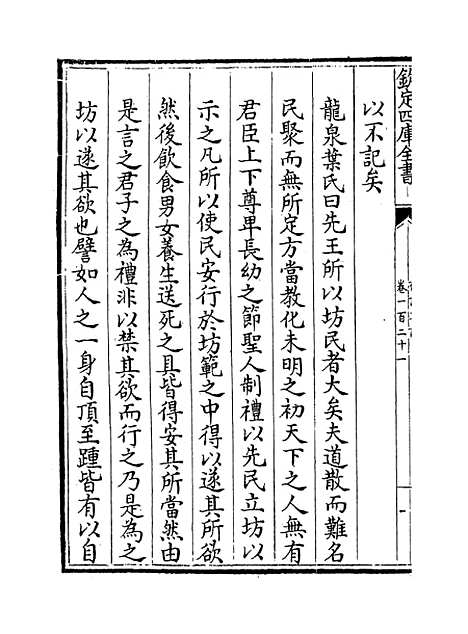 欽定四庫全書
卷一百二十一
以不記矣
龍泉葉氏曰先王所以坊民者大矣夫道散而難名
民聚而無所定方當教化未明之初天下之人無有
君臣上下尊卑長幼之節聖人制禮以先民立坊以
示之凡所以使民安行於坊範之中得以遂其所欲
然後飲食男女養生送死之具皆得安其所當然由
是言之君子之為禮非以禁其欲而行之乃是為之
坊以遂其欲也譬如人之一身自頂至踵皆有以自